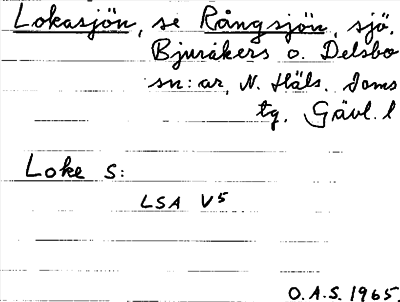 Lokasjön, se Rångsjön, sjö,
Bjuråkers o. Delsbo
sn:ar, N. Häls. Doms
tg, Gävl. l
Loke s:
LSA V5
O.A.S. 1965.